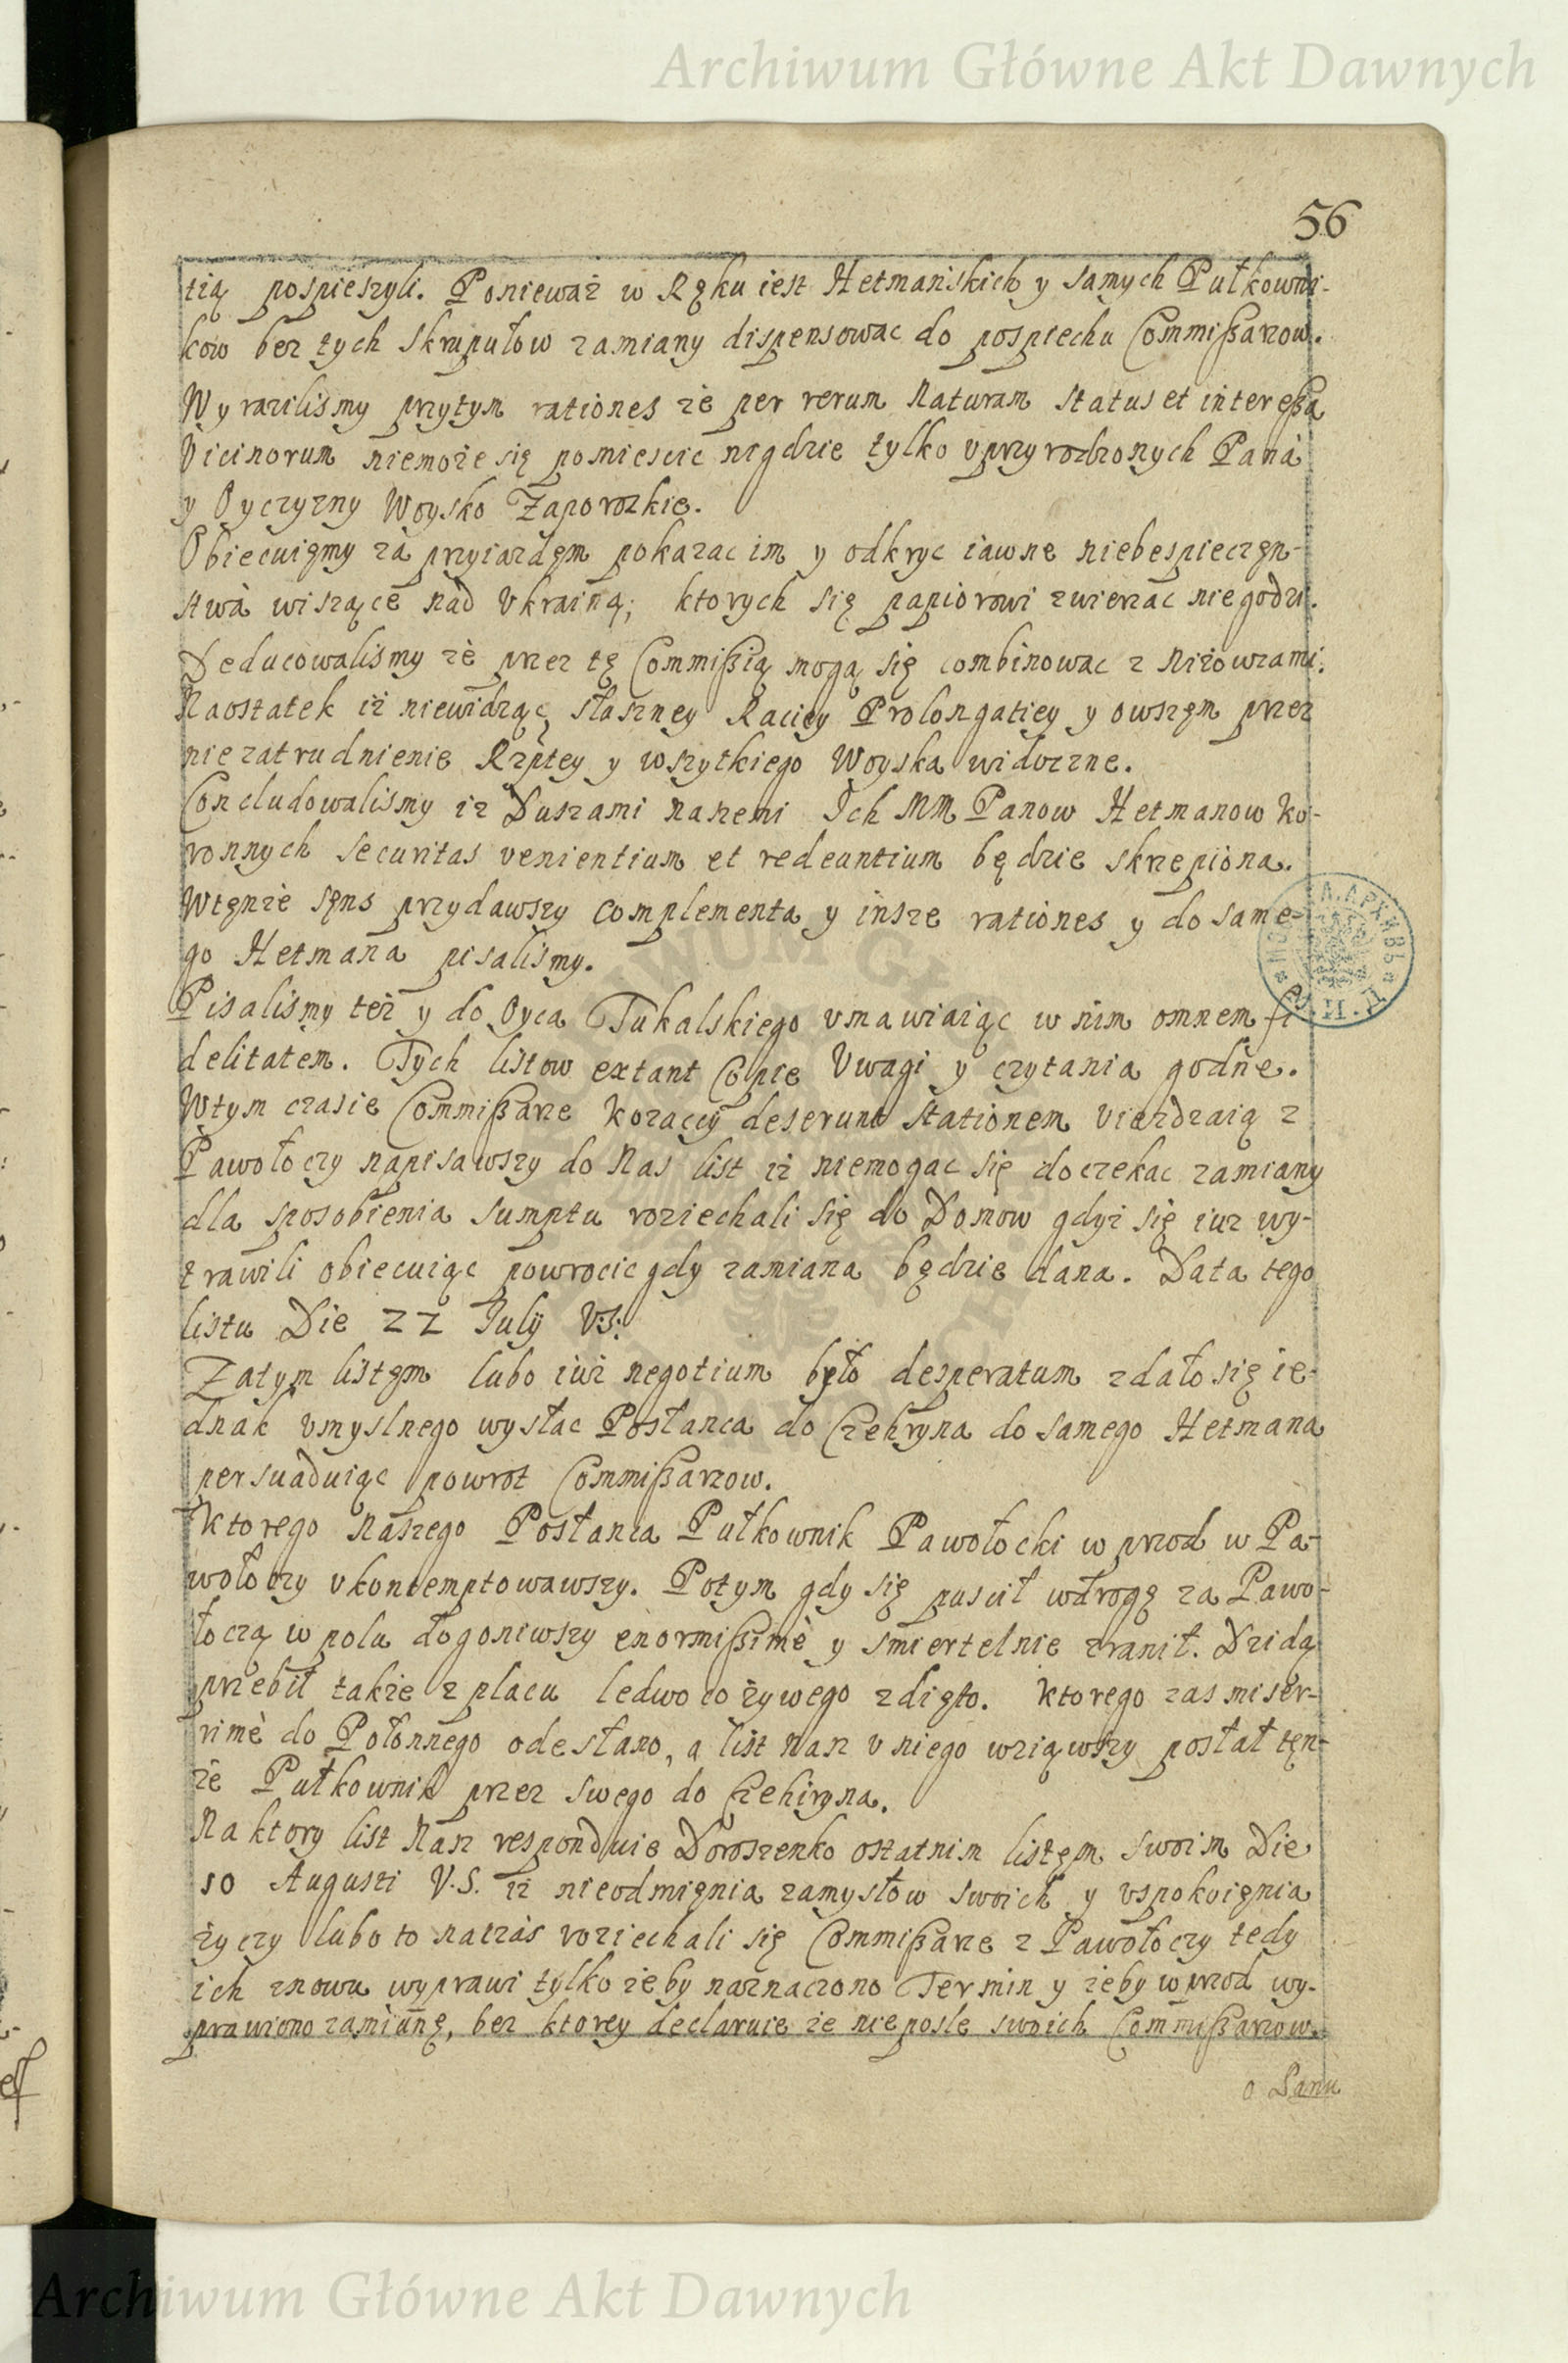 Archiwum Główne Akt Dawnych
56
tią pospieszyli. Ponieważ w Ręku iest Hetmańskich y samych Pułkowni-
kow bez tych skrupułow zamiany dispensowac do pospiechu Commißarzow.
Wyrazilismy przytym rationes że per rerum Naturam status et intereßa
Vicinorum niemoże się pomiescic nigdzie tylko v przyrodzonych Pana
y Oyczyzny Woysko Zaporozkie.
Obiecuięmy za przyiazdęm pokazac im y odkryc iawne niebespieczęn-
stwa wiszące nad Vkrainą; ktorych się papiorowi zwierzac niegodzi.
Deducowalismy że przez tę Commißią mogą się combinowac z Niżowzami.
Naostatek iż niewidząc słuszney Raciey Prolongatiey y owszęm przez
nie zatrudnienie Rzptey y wszytkiego Woyska widoczne.
Concludowalismy iz Duszami naszemi Ich MM Panow Hetmanow Ko-
ronnych securitas venientium et redeuntium będzie skrzepiona.
Wtęnże sęns przydawszy complementa y insze rationes y do same-
go Hetmana pisalismy.
Pisalismy też y do Oyca Tukalskiego vmawiaiąc w nim omnem fi
delitatem. Tych listow extant Copie Vwagi y czytania godne.
Wtym czasie Commißarze Kozaccy deserunt stationem viezdzaią z
Pawołoczy napisawszy do Nas list iż niemogac się doczekac zamiany
dla sposobienia sumptu roziechali się do Domow gdyż się iuz wy-
trawili obiecuiąc powrocic gdy zamiana będzie dana. Data tego
listu Die 22 July V.S.
Zatym listęm lubo iuż negotium było desperatum zdało się ie-
dnak vmyslnego wysłac Posłanca do Czehryna do samego Hetmana
persuaduiąc powrot Commißarzow.
Ktorego naszego Posłanca Pułkownik Pawołocki wprzod w Pa-
wołoczy vkontemptowawszy. Potym gdy się puscił wdrogę za Pawo-
łoczą w polu dogoniwszy enormißimè y smiertelnie zranił. Dzidą
przebił takze z placu ledwo co żywego zdięto. Ktorego zas miser-
rimè do Połonnego odesłano, a list nasz v niego wziąwszy posłał tęn-
że Pułkownik przez swego do Czehiryna.
Na ktory list Nasz responduie Doroszenko ostatnim listęm swoim Die
10 Augusti V.S. iż nieodmięnia zamysłow swoich y vspokoięnia
życzy lubo to natzas roziechali się Commißarze z Pawołoczy tedy
ich znowu wyprawi tylko żeby naznaczono Termin y żeby wprzod wy-
prawiono zamiąnę, bez ktorey declaruie że nieposle swoich Commißarzow.
Archiwum Główne Akt Dawnych